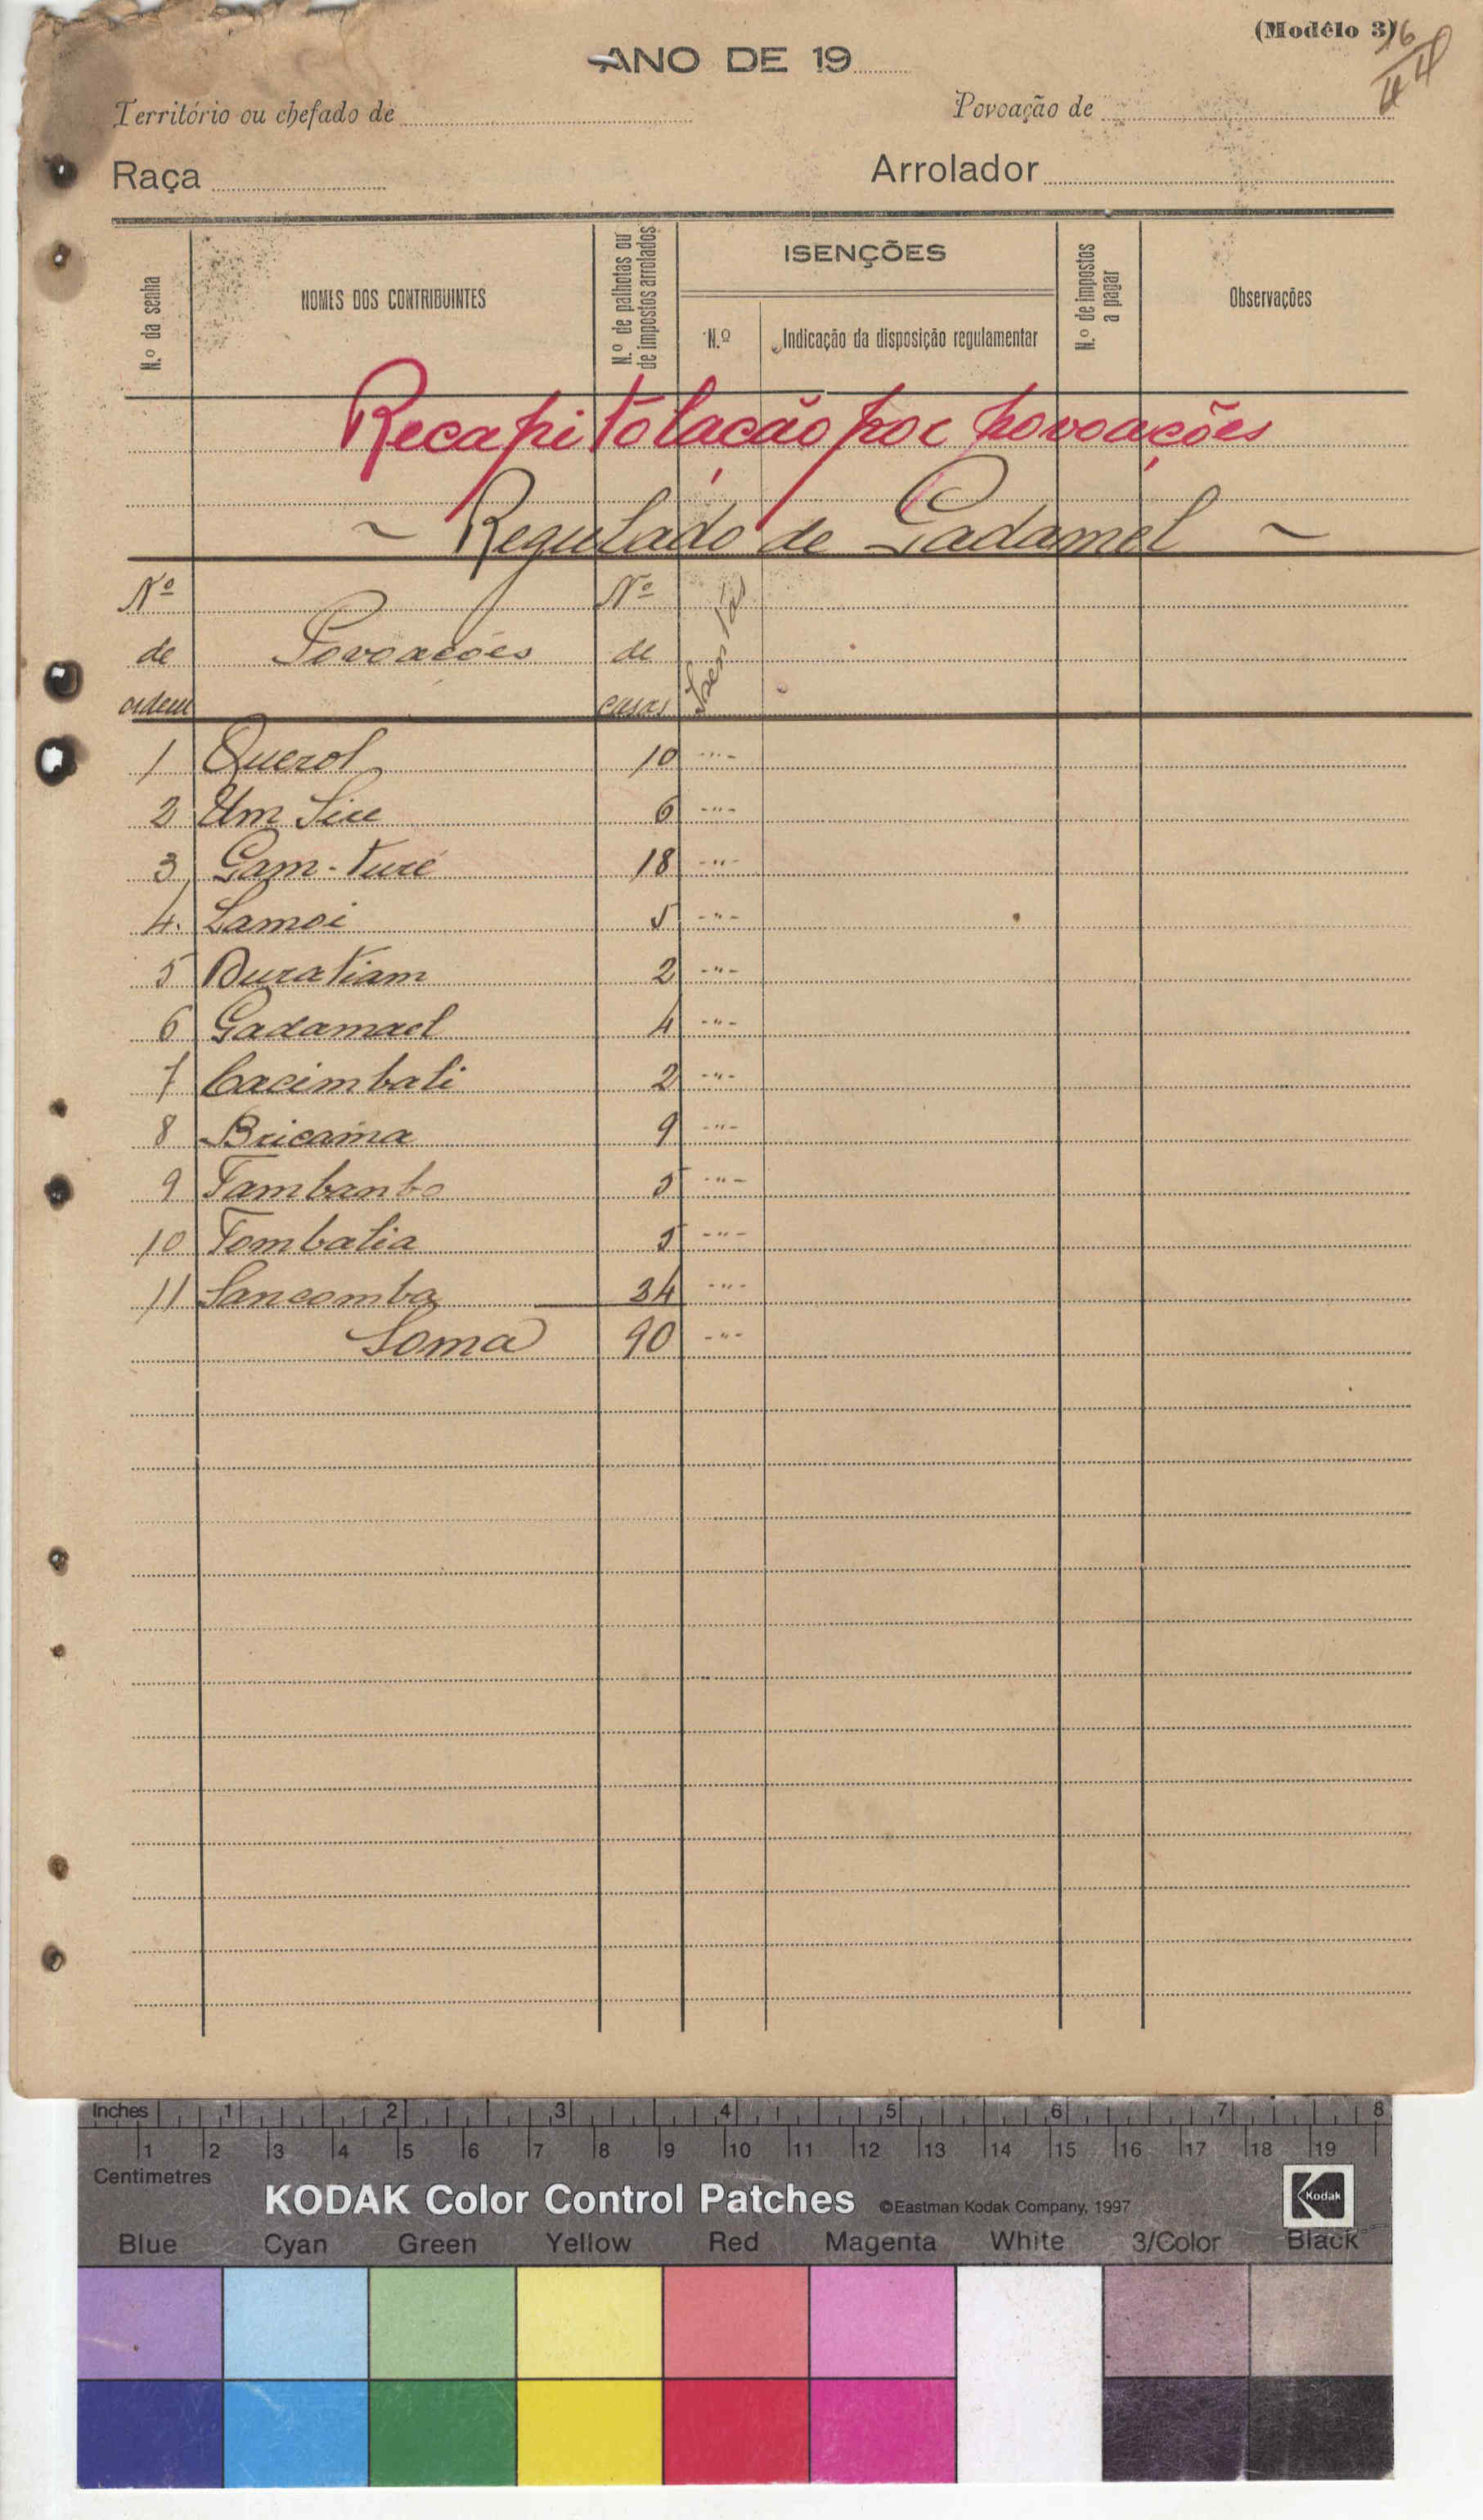 (Modêlo 3)
16
ANO DE 19
Território ou chefado de
Povoação de
Raça
Arrolador
N.º da senha
NOMES DOS CONTRIBUINTES
N.º de palhotas ou
de impostos arrolados
ISENÇÕES
N.º
Indicação da disposição regulamentar
N.º de impostos
a pagar
Observações
Recapitolação por povoações
~ Regulado de Gadamel ~
Nº de ordem
Povoações
Nº de casas
Isentas
1 Querol 10 -"-
2 Um Sire 6 -"-
3 Gam-Turé 18 -"-
4. Lamoi 5 -"-
5 Duratiam 2 -"-
6 Gadamael 4 -"-
7 Cacimbali 2 -"-
8 Bricama 9 -"-
9 Tambanto 5 -"-
10 Tombatia 5 -"-
11 Sancomba 24 -"-
Soma 90 -"-
Inches 1 2 3 4 5 6 7 8
1 2 3 4 5 6 7 8 9 10 11 12 13 14 15 16 17 18 19
Centimetres
KODAK Color Control Patches ©Eastman Kodak Company, 1997 Kodak
Blue Cyan Green Yellow Red Magenta White 3/Color Black